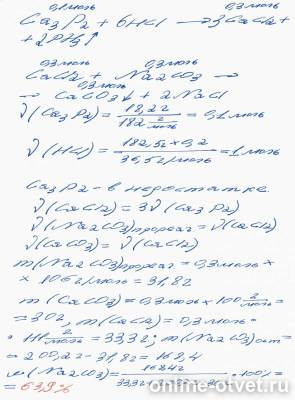 0,1моль 0,3моль
Ca3P2 + 6HCl → 3CaCl2 +
+ 2PH3↑
0,3моль 0,3моль
CaCl2 + Na2CO3 →
0,3моль
→ CaCO3↓ + 2NaCl
ν(Ca3P2) = 18,2г / 182 г/моль = 0,1моль
ν(HCl) = 182,5г × 0,2 / 36,5г/моль = 1моль
Ca3P2 - в недостатке.
ν(CaCl2) = 3ν(Ca3P2)
ν(Na2CO3)прореаг = ν(CaCl2)
ν(CaCO3) = ν(CaCl2)
m(Na2CO3)прореаг = 0,3моль ×
× 106г/моль = 31,8г
m(CaCO3) = 0,3моль × 100 г/моль =
= 30г, m(CaCl2) = 0,3моль ·
· 111 г/моль = 33,3г; m(Na2CO3)ост =
= 200,2г - 31,8г = 168,4
ω(Na2CO3) = 168,4г · 100% =
= 63,9%
online-otvet.ru